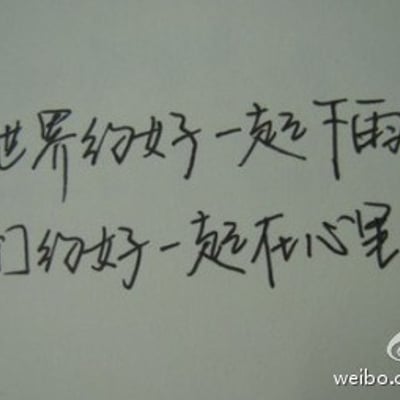 世界约好一起下雨
们约好一起在心里
weibo.c